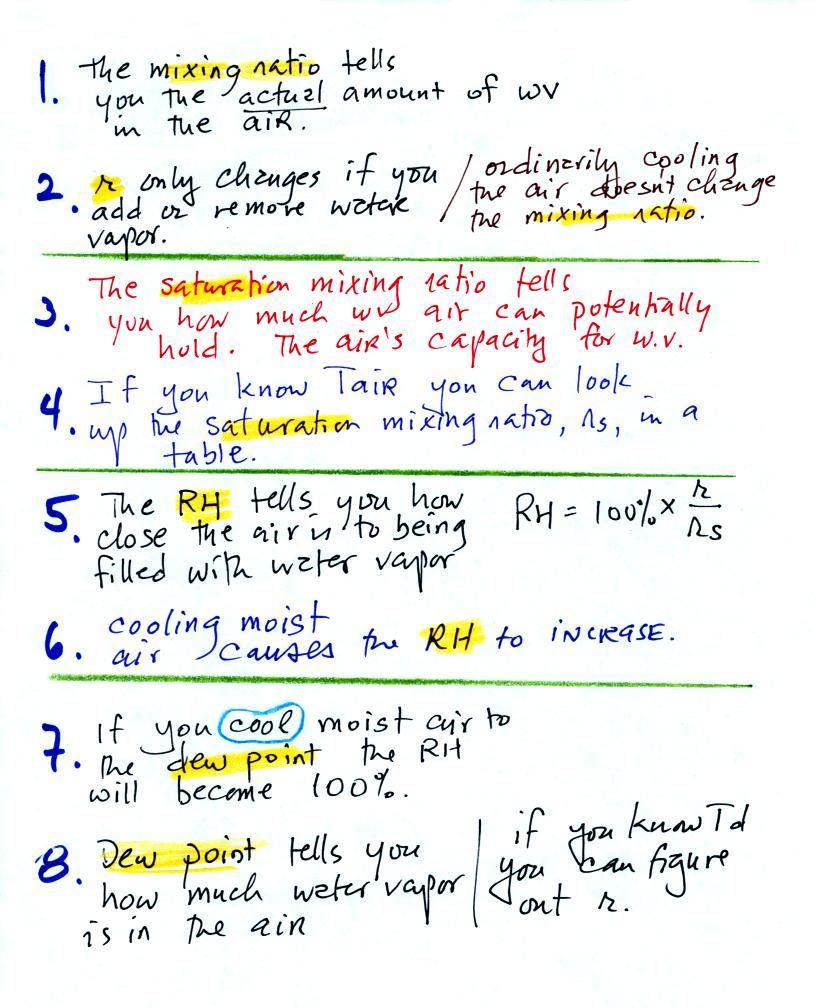 1. The mixing ratio tells
you the actual amount of wv
in the air.
2. r only changes if you
add or remove water
vapor.
/ ordinarily cooling
the air doesn't change
the mixing ratio.
3. The saturation mixing ratio tells
you how much wv air can potentially
hold. The air's capacity for w.v.
4. If you know Tair you can look
up the saturation mixing ratio, rs, in a
table.
5. The RH tells you how
close the air is to being
filled with water vapor
RH = 100% x r/rs
6. cooling moist
air causes the RH to increase.
7. If you cool moist air to
the dew point the RH
will become 100%.
8. Dew point tells you
how much water vapor
is in the air
if you know Td
you can figure
out r.